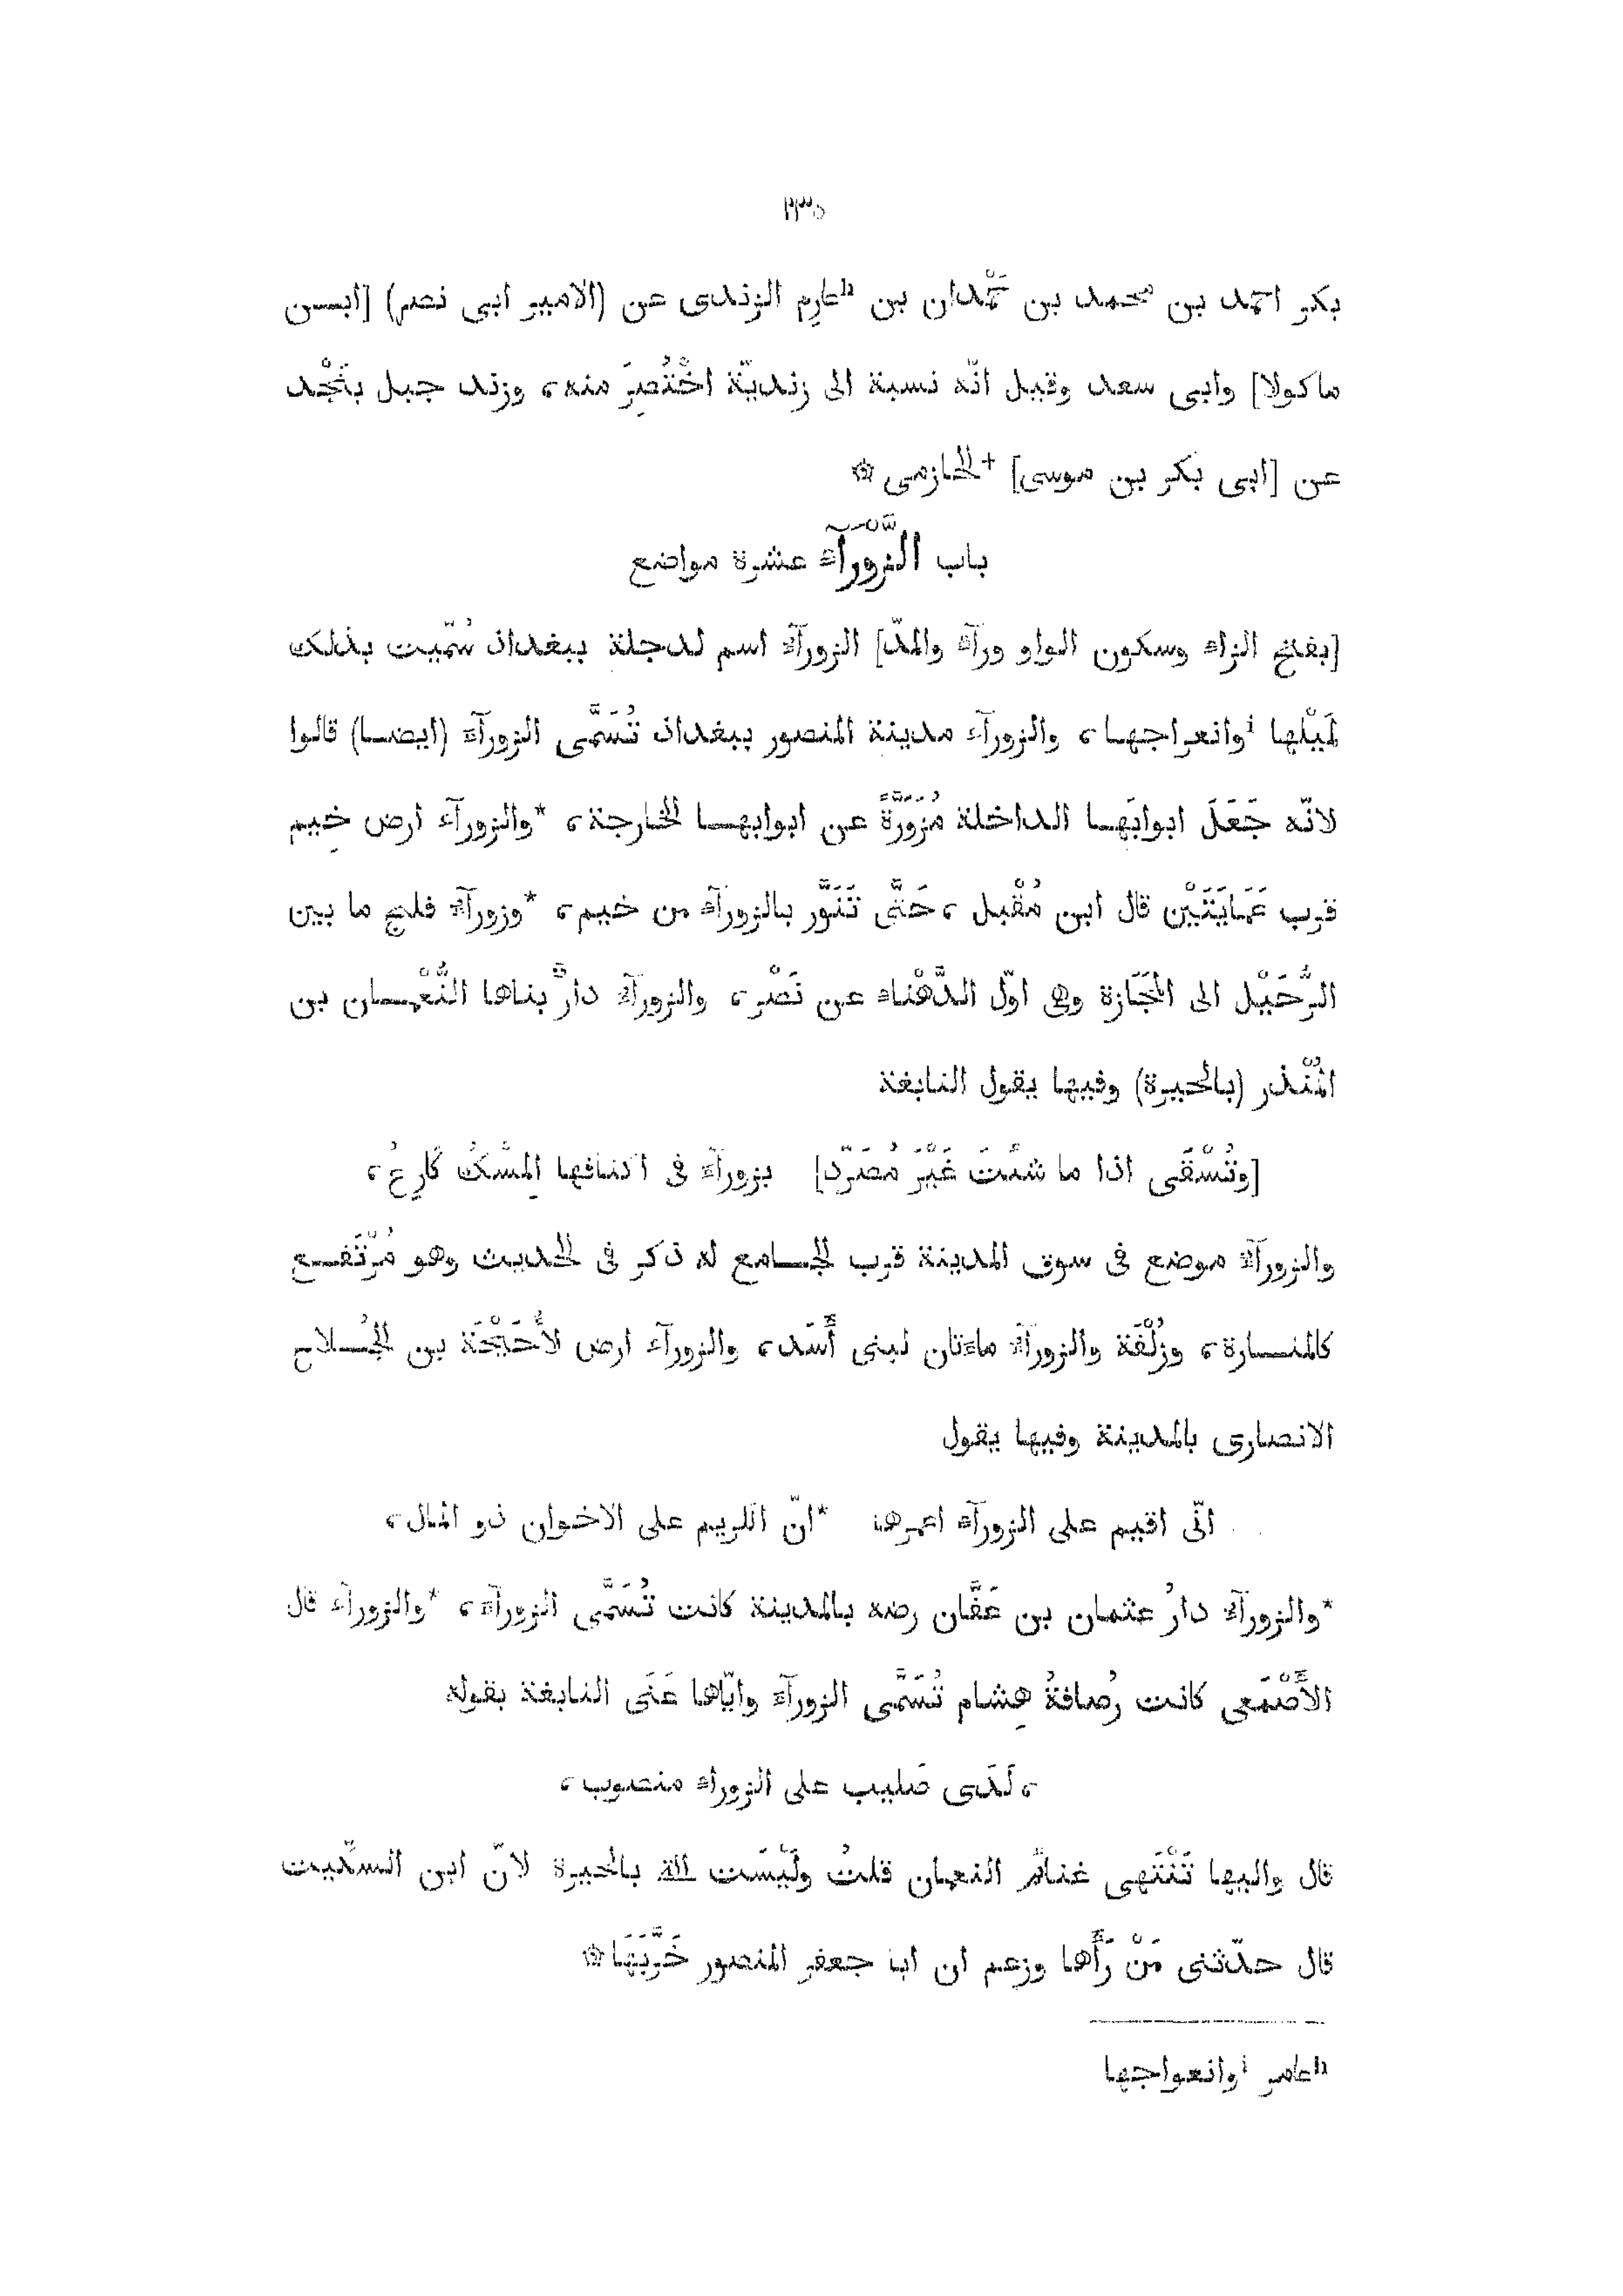 ٢٣٥
بكر احمد بن محمد بن حَمْدان بن hعارِم الزندى عن (الامير ابى نصر) [ابن
ماكولا] وابى سعد وقيل انّه نسبة الى زنديّة اخْتُصِرَ منه، وزند جبل بنَجْد
عن [ابى بكر بن موسى] †الحازمى ۞
باب الزَّوْرَآء عشرة مواضع
[بفتح الزاء وسكون الواو ورآء والمدّ] الزورآء اسم لدجلة ببغداد سُمّيت بذلك
لمَيْلها iوانعراجها، والزورآء مدينة المنصور ببغداد تُسَمَّى الزورآء (ايضا) قالوا
لانّه جَعَلَ ابوابَها الداخلة مُزَوَرَّةً عن ابوابها الخارجة، *والزورآء ارض خِيم
قرب عَمَايَتَيْن قال ابن مُقْبل، حَتَّى تَنَوَّر بالزورآء من خيم، *وزورآء فلج ما بين
الرُّحَيْل الى المَجَازة وهى اوّل الدَّهْناء عن نَصْر، والزورآء دارٌ بناها النُّعْمان بن
المُنْذر (بالحيرة) وفيها يقول النابغة
[وتُسْقَى اذا ما شئتَ غَيْرَ مُصَرَّد] بزورآء فى اكنافها المِسْكُ كَارِعُ،
والزورآء موضع فى سوق المدينة قرب الجامع له ذكر فى الحديث وهو مُرْتَفع
كالمنارة، وزُلْفَة والزورآء ماءتان لبنى أَسَد، والزورآء ارض لأُحَيْحَة بن الجُلاح
الانصارى بالمدينة وفيها يقول
انّى اقيم على الزورآء اعمرها *انّ الكريم على الاخوان ذو المال،
*والزورآء دارُ عثمان بن عَفَّان رضه بالمدينة كانت تُسَمَّى الزورآء، *والزورآء قال
الأَصْمَعى كانت رُصافةُ هِشام تُسَمَّى الزورآء وايّاها عَنَى النابغة بقوله
، لَدَى صَليب على الزورآء منصوب،
قال واليها تَنْتَهى غنائم النعمان قلتُ ولَيْسَت الّة بالحيرة لانّ ابن السكّيت
قال حدّثنى مَنْ رَأَها وزعم ان ابا جعفر المنصور خَرَّبَهَا ۞
hعامر iوانعواجها